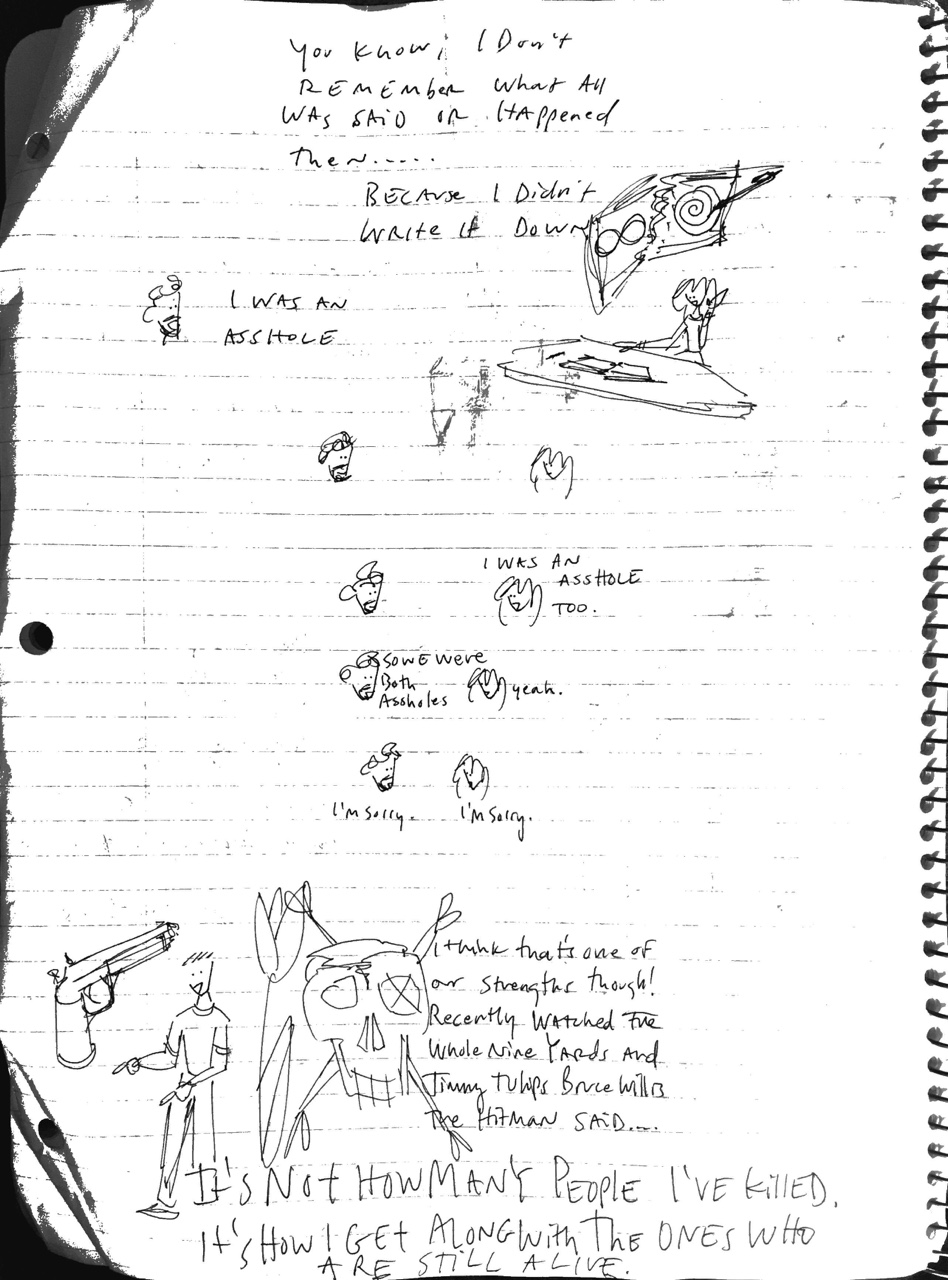 You Know, I Don't
REMEMBER What All
WAS SAID OR HAppened
Then.....
BECAuse I Didn't
WRite It Down
I WAS AN
ASSHOLE
I WAS AN
ASSHOLE
TOO.
SO WE WERE
Both
Assholes
yeah.
I'm sorry.
I'm sorry.
I think that's one of
our strengths though!
Recently WAtched The
Whole Nine YARDS And
Jimmy Tulips Bruce Willis
The HITMAN SAID....
It's Not HOW MANY PEOPLE I'VE KillED.
It's How I GEt ALONG With The ONES WHO
ARE STILL ALIVE.